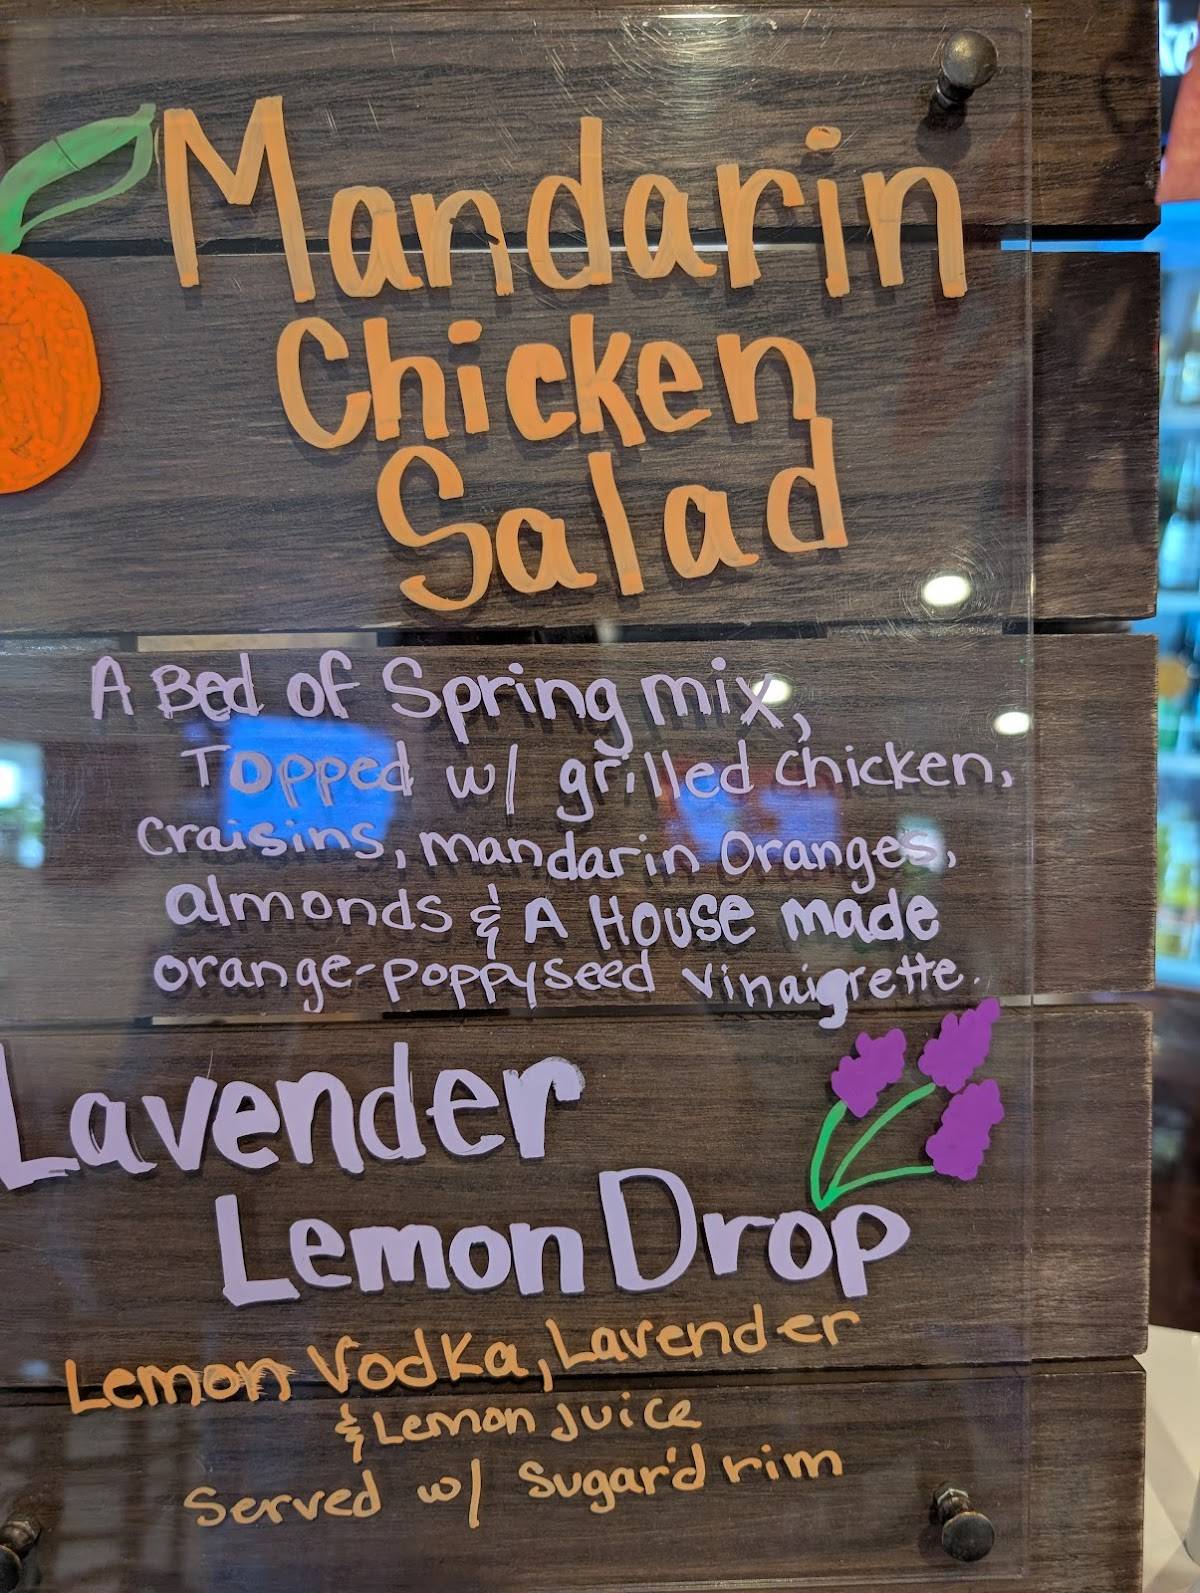 Mandarin
Chicken
Salad
A Bed of Spring mix,
Topped w/ grilled chicken,
Craisins, mandarin Oranges,
almonds & A House made
orange-poppyseed vinaigrette.
Lavender
Lemon Drop
Lemon Vodka, Lavender
& Lemon juice
Served w/ Sugar'd rim